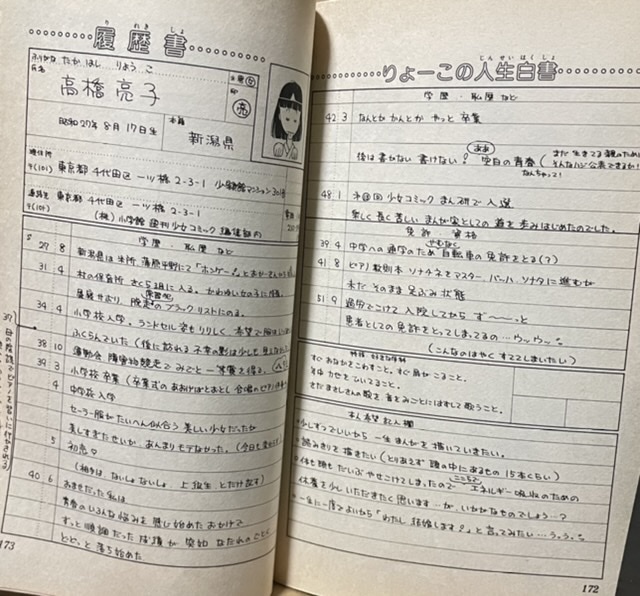 履歴書
りれきしょ
ふりがな たかはし りょうこ
氏名 高橋亮子
印 亮
昭和27年8月17日生
本籍 新潟県
現住所
〒(101) 東京都千代田区一ツ橋2-3-1 小学館マンション301号
連絡先 東京都千代田区一ツ橋2-3-1
〒(101) (株)小学館 週刊少女コミック編集部内
学歴・私歴など
S 29 8 新潟県は米所 蒲原平野にて「ホンゲー」とおかーさんから
31 4 村の保育所 さくら組に入る。かわゆい女の子に
昼寝せおり、脱走のブラックリストにのる。
34 4 小学校入学。ランドセル姿もりりしく 希望で胸は
ふくらんでいた(後に訪れる不幸の影は少しも見
38 10 運動会 障害物競走でみごと一等賞を得る。
39 3 小学校卒業(卒業式のあおげばとおとし 合唱のピアノ
4 中学校入学
セーラー服がたいへん似合う美しい少女だったが
美しすぎたせいか、あんまりモテなかった。(今日も
5 初恋♡
(相手は ないしょないしょ 上級生 とだけ話す)
40 6 おませだった私は
青春のいろんな悩みを感じ始めたおかげで
ずっと順調だった成績が 突如 なだれのごとく
どどっと落ち始めた
母の度訓でピアノを習いに行かされる
173
りょーこの人生白書
じんせいはくしょ
学歴・私歴など
42 3 なんとかかんとか やっと 卒業
後は書かない 書けない! ああ 空白の青春(まだ生きてる親のために
そんなハジ公表できるか!
なんちゃって!
48 1 少女コミックまんが研で入選
楽しく長く苦しい まんが家としての道を歩みはじめたのでした。
免許・資格
39 4 中学への通学のため やむなく 自転車の免許をとる(?)
41 8 ピアノ教則本 ソナチネをマスター、バーハ、ソナタに進むが
未だ そのまま足ぶみ状態
51 9 過労でこけて入院してから ず〜〜っと
患者としての免許をとってしまってるの…ウッウッ。
(こんなのはやく すててしまいたい)
特技・好きな学科
すぐおなかをこわすこと。すぐ肩がこること。
体力をひいてること。
まさしさんの歌を音をみごとにはずして歌うこと。
本人希望記入欄
少しずつでいいから 一生まんがを描いていきたい。
読みきりを描きたい(とりあえず 頭の中にあるもの 15本くらい)
体も頭もだいぶやせこけてしまったので ここらで エネルギー吸収のための
休養を少しいただきたく思います…が、いかがなものでしょう…?
一生に一度でよいから「わたし 結婚します♡」と言ってみたい…うっうっ。
172